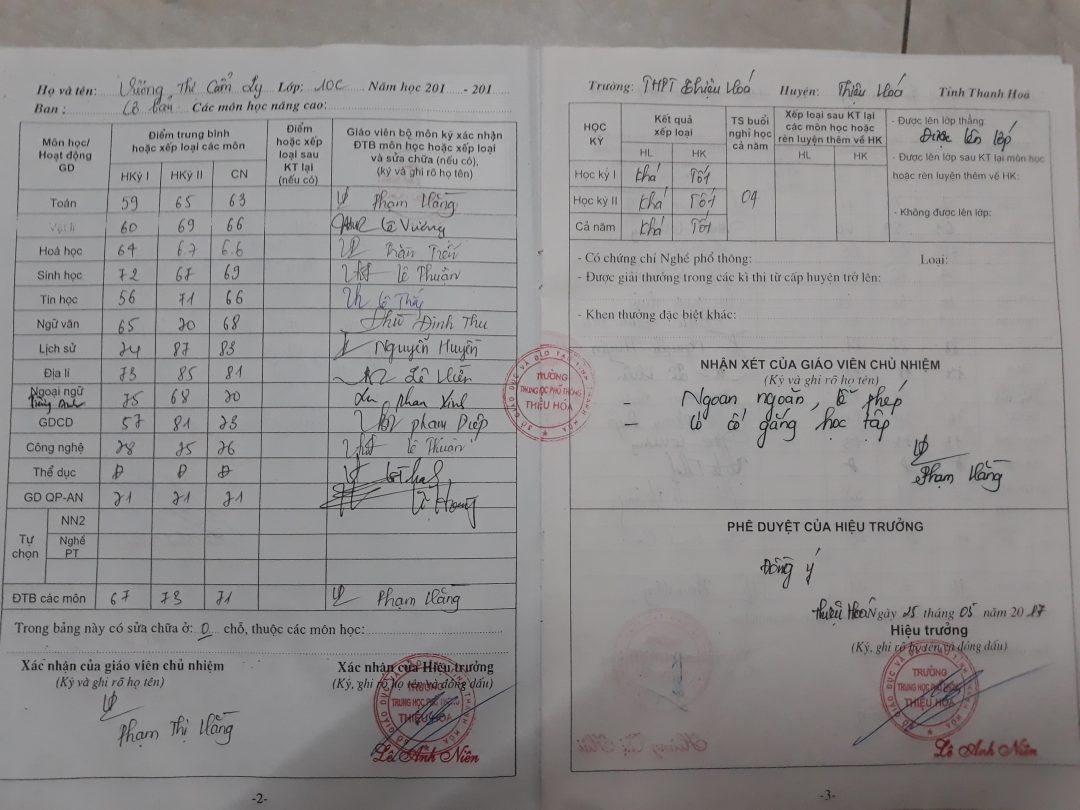 Họ và tên: Vương Thị Cẩm Ly Lớp: 10C Năm học 201 - 201
Ban: Cơ bản Các môn học nâng cao:
Môn học/ Hoạt động GD
Điểm trung bình hoặc xếp loại các môn
HKỳ I HKỳ II CN
Điểm hoặc xếp loại sau KT lại (nếu có)
Giáo viên bộ môn ký xác nhận ĐTB môn học hoặc xếp loại và sửa chữa (nếu có), (ký và ghi rõ họ tên)
Toán 59 65 63 Phạm Hằng
Vật lí 60 69 66 Lê Vương
Hoá học 64 6.7 6.6 Trần
Sinh học 72 67 69 Lê Thuận
Tin học 56 71 66 Lê Thủy
Ngữ văn 65 70 68 Đinh Thu
Lịch sử 74 87 83 Nguyễn Huyền
Địa lí 73 85 81 Lê
Ngoại ngữ Tiếng Anh 75 68 70 Phan
GDCD 57 81 73 Phạm Diệp
Công nghệ 78 75 76 Lê Thuận
Thể dục Đ Đ Đ
GD QP-AN 71 71 71
Tự chọn
NN2
Nghề PT
ĐTB các môn 67 73 71 Phạm Hằng
Trong bảng này có sửa chữa ở: 0 chỗ, thuộc các môn học:
Xác nhận của giáo viên chủ nhiệm
(Ký và ghi rõ họ tên)
Phạm Thị Hằng
Xác nhận của Hiệu trưởng
(Ký, ghi rõ họ tên và đóng dấu)
TRƯỜNG
TRUNG HỌC PHỔ THÔNG
THIỆU HÓA
Lê Anh Niên
-2-
SỞ GIÁO DỤC VÀ ĐÀO TẠO TỈNH THANH HÓA
TRƯỜNG
TRUNG HỌC PHỔ THÔNG
THIỆU HÓA
Trường: THPT Thiệu Hoá Huyện: Thiệu Hoá Tỉnh Thanh Hoá
HỌC KỲ
Kết quả xếp loại
HL HK
TS buổi nghỉ học cả năm
Xếp loại sau KT lại các môn học hoặc rèn luyện thêm về HK
HL HK
Học kỳ I Khá Tốt
Học kỳ II Khá Tốt
Cả năm Khá Tốt
04
- Được lên lớp thẳng:
Được lên lớp
- Được lên lớp sau KT lại môn học
hoặc rèn luyện thêm về HK:
- Không được lên lớp:
- Có chứng chỉ Nghề phổ thông: Loại:
- Được giải thưởng trong các kì thi từ cấp huyện trở lên:
- Khen thưởng đặc biệt khác:
NHẬN XÉT CỦA GIÁO VIÊN CHỦ NHIỆM
(Ký và ghi rõ họ tên)
- Ngoan ngoãn, lễ phép
- Có cố gắng học tập
Phạm Hằng
PHÊ DUYỆT CỦA HIỆU TRƯỞNG
Đồng ý
Thiệu Hoá Ngày 25 tháng 05 năm 2017
Hiệu trưởng
(Ký, ghi rõ họ tên và đóng dấu)
TRƯỜNG
TRUNG HỌC PHỔ THÔNG
THIỆU HÓA
Lê Anh Niên
-3-